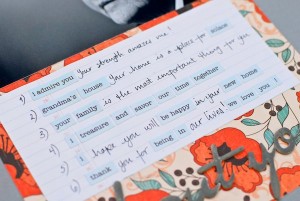 1) I admire you Your strength amazes me!
2) grandma's house Your home is a for solace
3) your family is the most important thing for you
4) I treasure and savor our time together
5) I hope you will be happy in your new home
6) thank you for being in our lives! we love you!